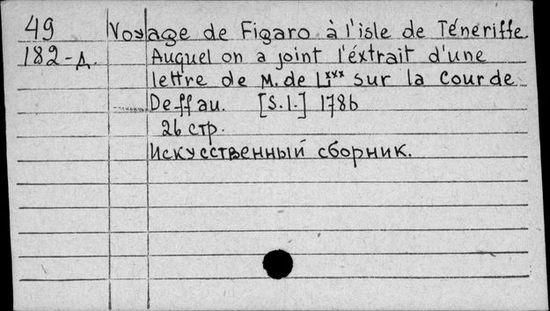 49 Voyage de Figaro à l'isle de Téneriffe.
182-д. Auquel on a joint l'éxtrait d'une
lettre de M. de L*** sur la Cour de
Deffau. [S.l.] 1786
26 стр.
Искусственный сборник.